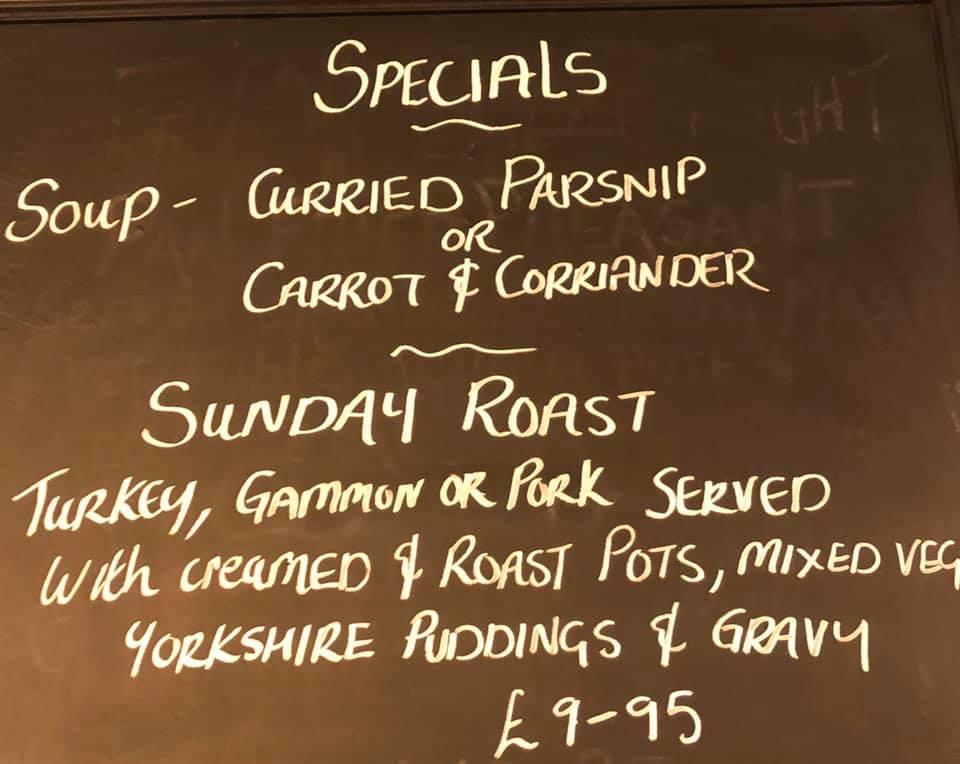 SPECIALS
SOUP - CURRIED PARSNIP
OR
CARROT & CORRIANDER
SUNDAY ROAST
TURKEY, GAMMON OR PORK SERVED
With creamed & ROAST POTS, MIXED VEG
YORKSHIRE PUDDINGS & GRAVY
£9-95